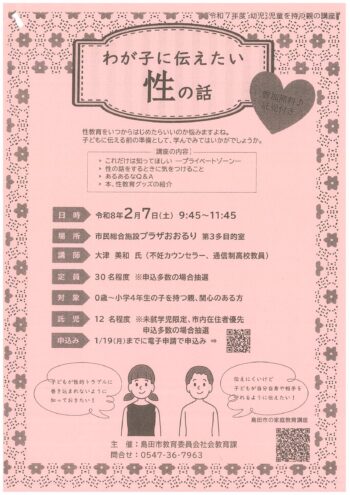 令和7年度 幼児・児童を持つ親の講座
わが子に伝えたい
性の話
参加無料♪
託児付き
性教育をいつからはじめたらいいのか悩みますよね。
子どもに伝える前の準備として、学んでみてはいかがでしょうか。
講座の内容
これだけは知ってほしい ープライベートゾーンー
性の話をするときに気をつけること
あるあるなQ&A
本、性教育グッズの紹介
日 時 令和8年2月7日(土) 9:45～11:45
場 所 市民総合施設プラザおおるり 第3多目的室
講 師 大津 美和 氏 (不妊カウンセラー、通信制高校教員)
定 員 30名程度 ※申込多数の場合抽選
対 象 0歳～小学4年生の子を持つ親、関心のある方
託 児 12名程度 ※未就学児限定、市内在住者優先
申込多数の場合抽選
申込み 1/19(月)までに電子申請で申込み ⇒
子どもが性的トラブルに
巻き込まれないように
知っておきたい!
伝えにくいけど
子どもが自分自身や相手を
守れるように伝えたい!
島田市の家庭教育講座
主 催：島田市教育委員会社会教育課
問合せ：0547-36-7963